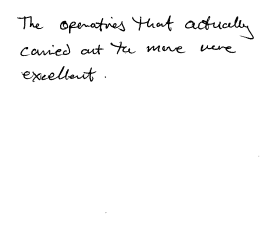 The operatives that actually
carried out the move were
excellent.